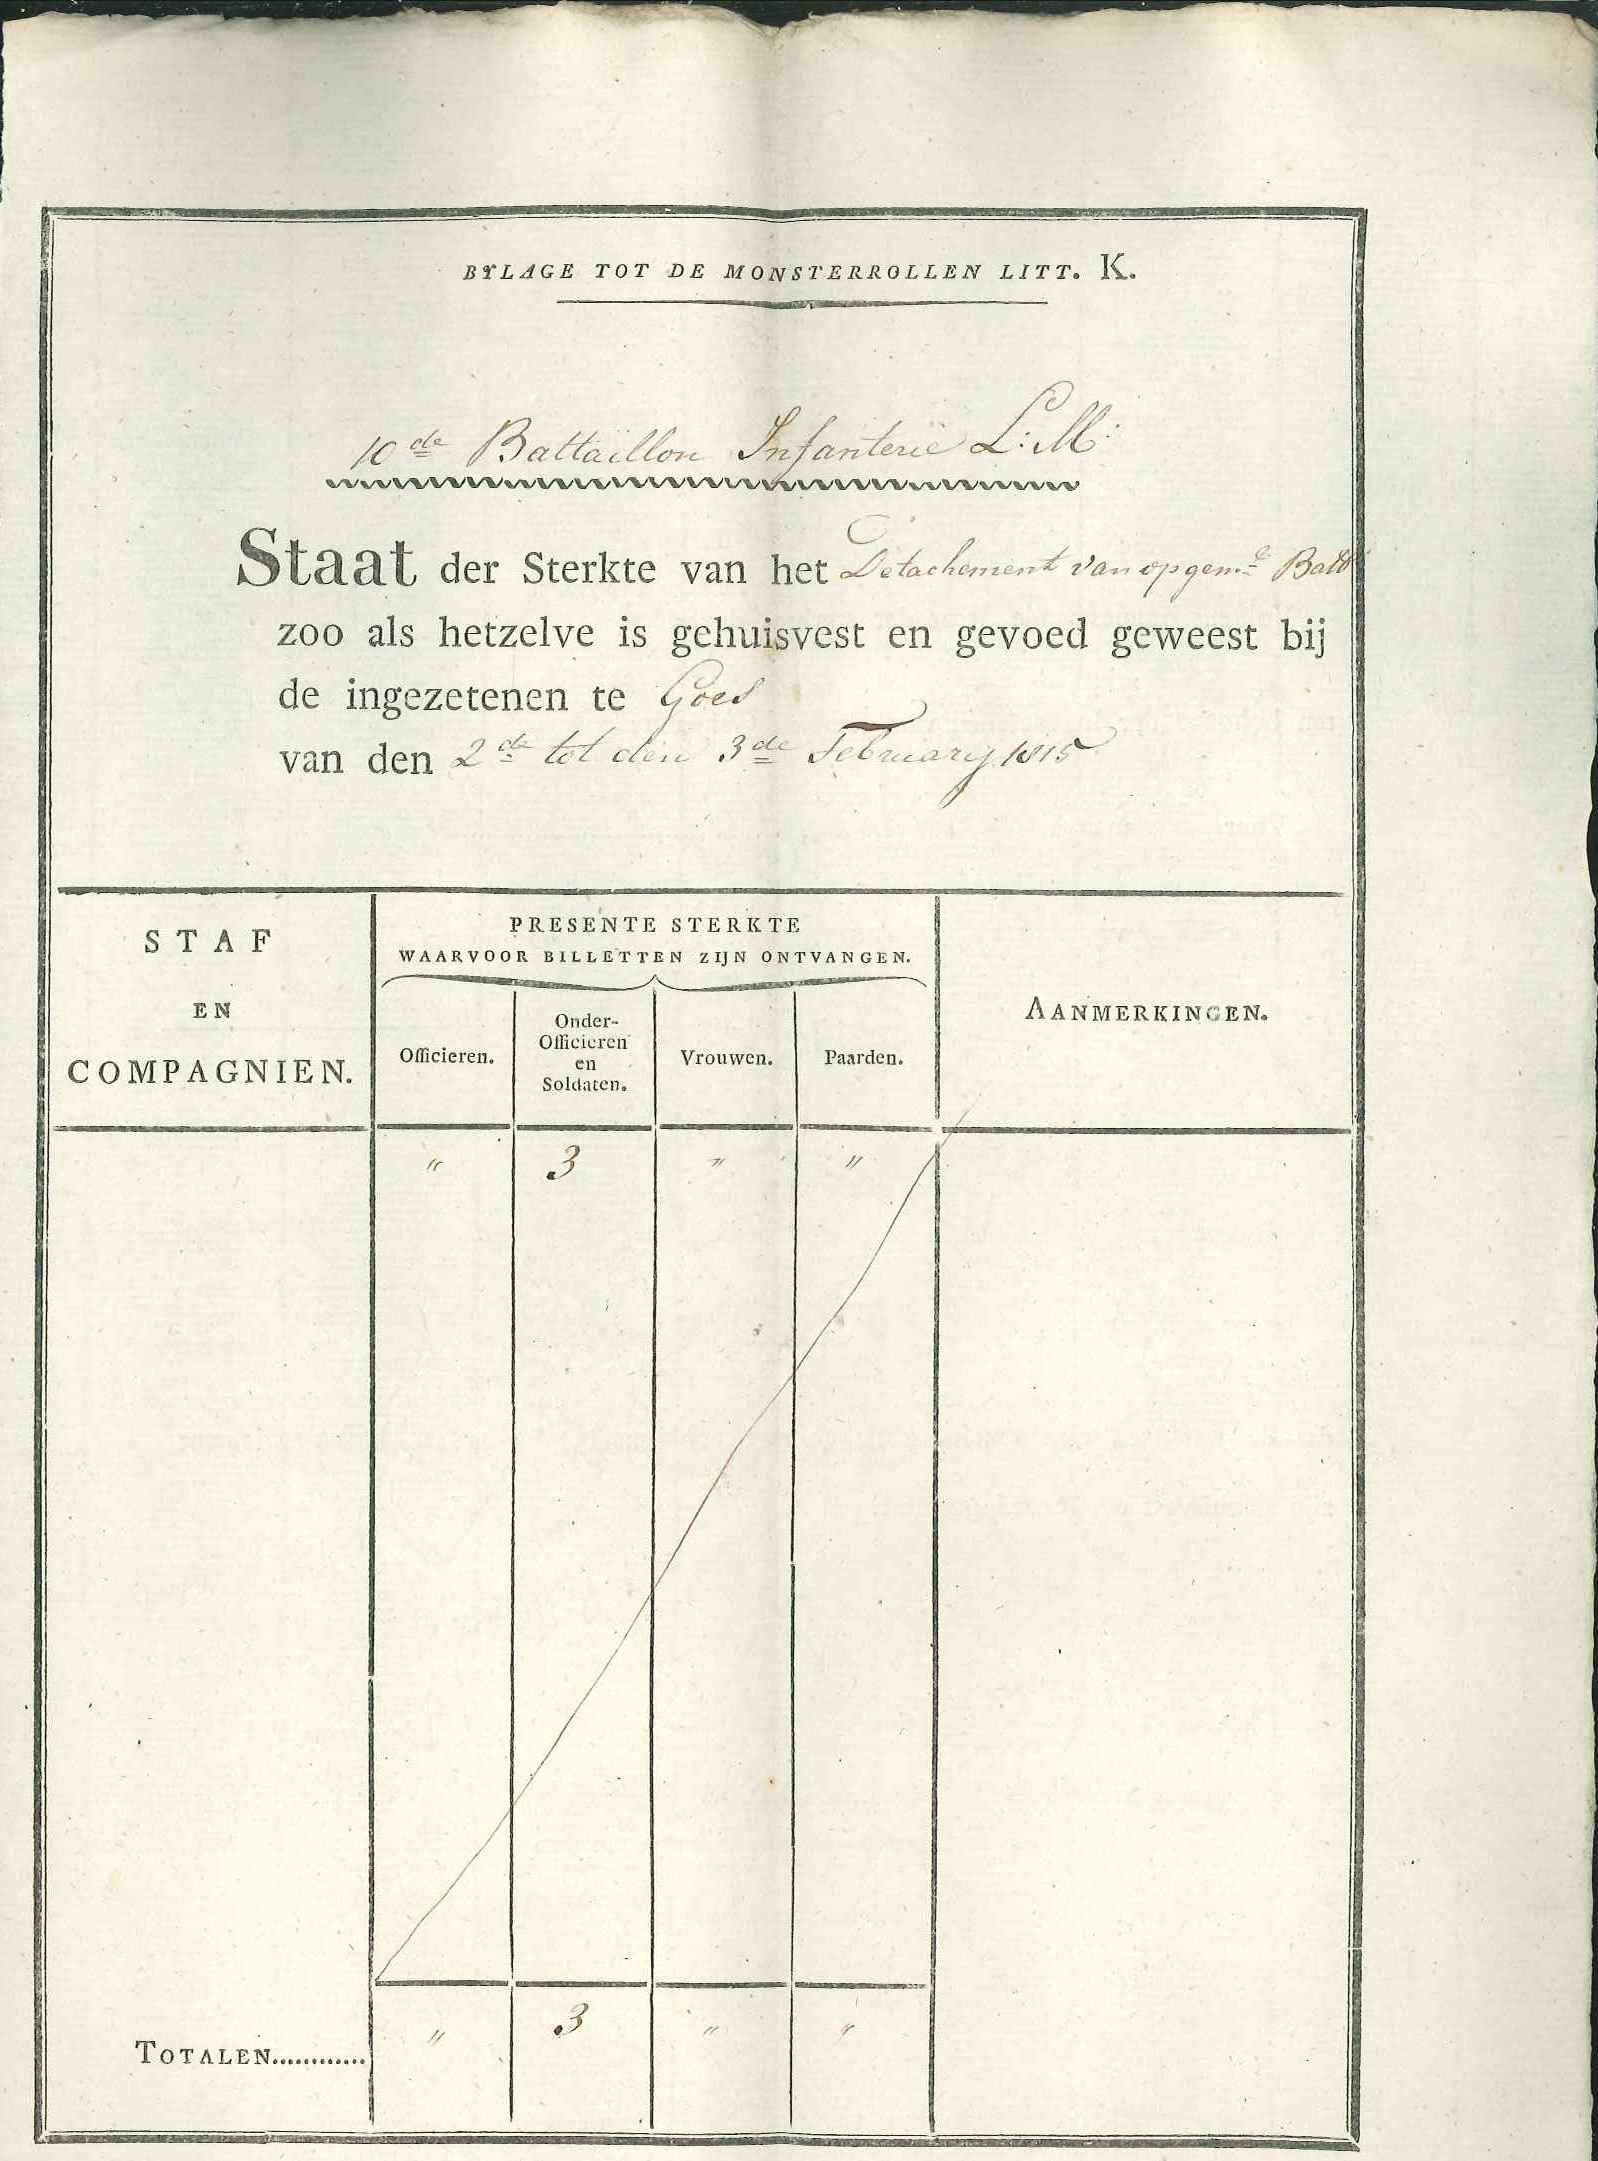 BYLAGE TOT DE MONSTERROLLEN LITT. K.
10de Battaillon Infanterie L: M:
Staat der Sterkte van het Detachement van opgem.e Batt
zoo als hetzelve is gehuisvest en gevoed geweest bij
de ingezetenen te Goes
van den 2de tot den 3de February 1815
STAF
EN
COMPAGNIEN.
PRESENTE STERKTE
WAARVOOR BILLETTEN ZIJN ONTVANGEN.
Officieren.
Onder-
Officieren
en
Soldaten.
Vrouwen.
Paarden.
AANMERKINGEN.
" 3 " "
TOTALEN............ " 3 " "